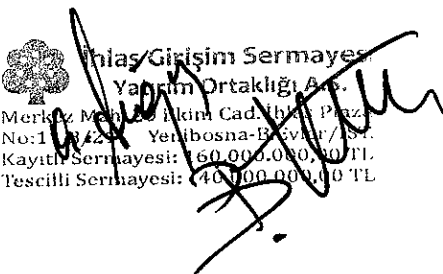 İhlas Girişim Sermayesi
Yatırım Ortaklığı A.Ş.
Merkez Mah. Ekim Cad. İhlas Plaza
No: Yenibosna-B
Kayıtlı Sermayesi: 160.000.000,00 TL
Tescilli Sermayesi: 40.000.000,00 TL